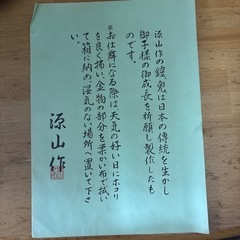 源山作の鎧兜は日本の伝統を生かし
御子様の御成長を祈願し製作したも
のです。
※お仕舞になる際は、天気の好い日にホコリ
を良く掃い、金物の部分を柔かい布で拭い
て箱に納め、湿気のない場所へ置いて下さ
い。
源山作